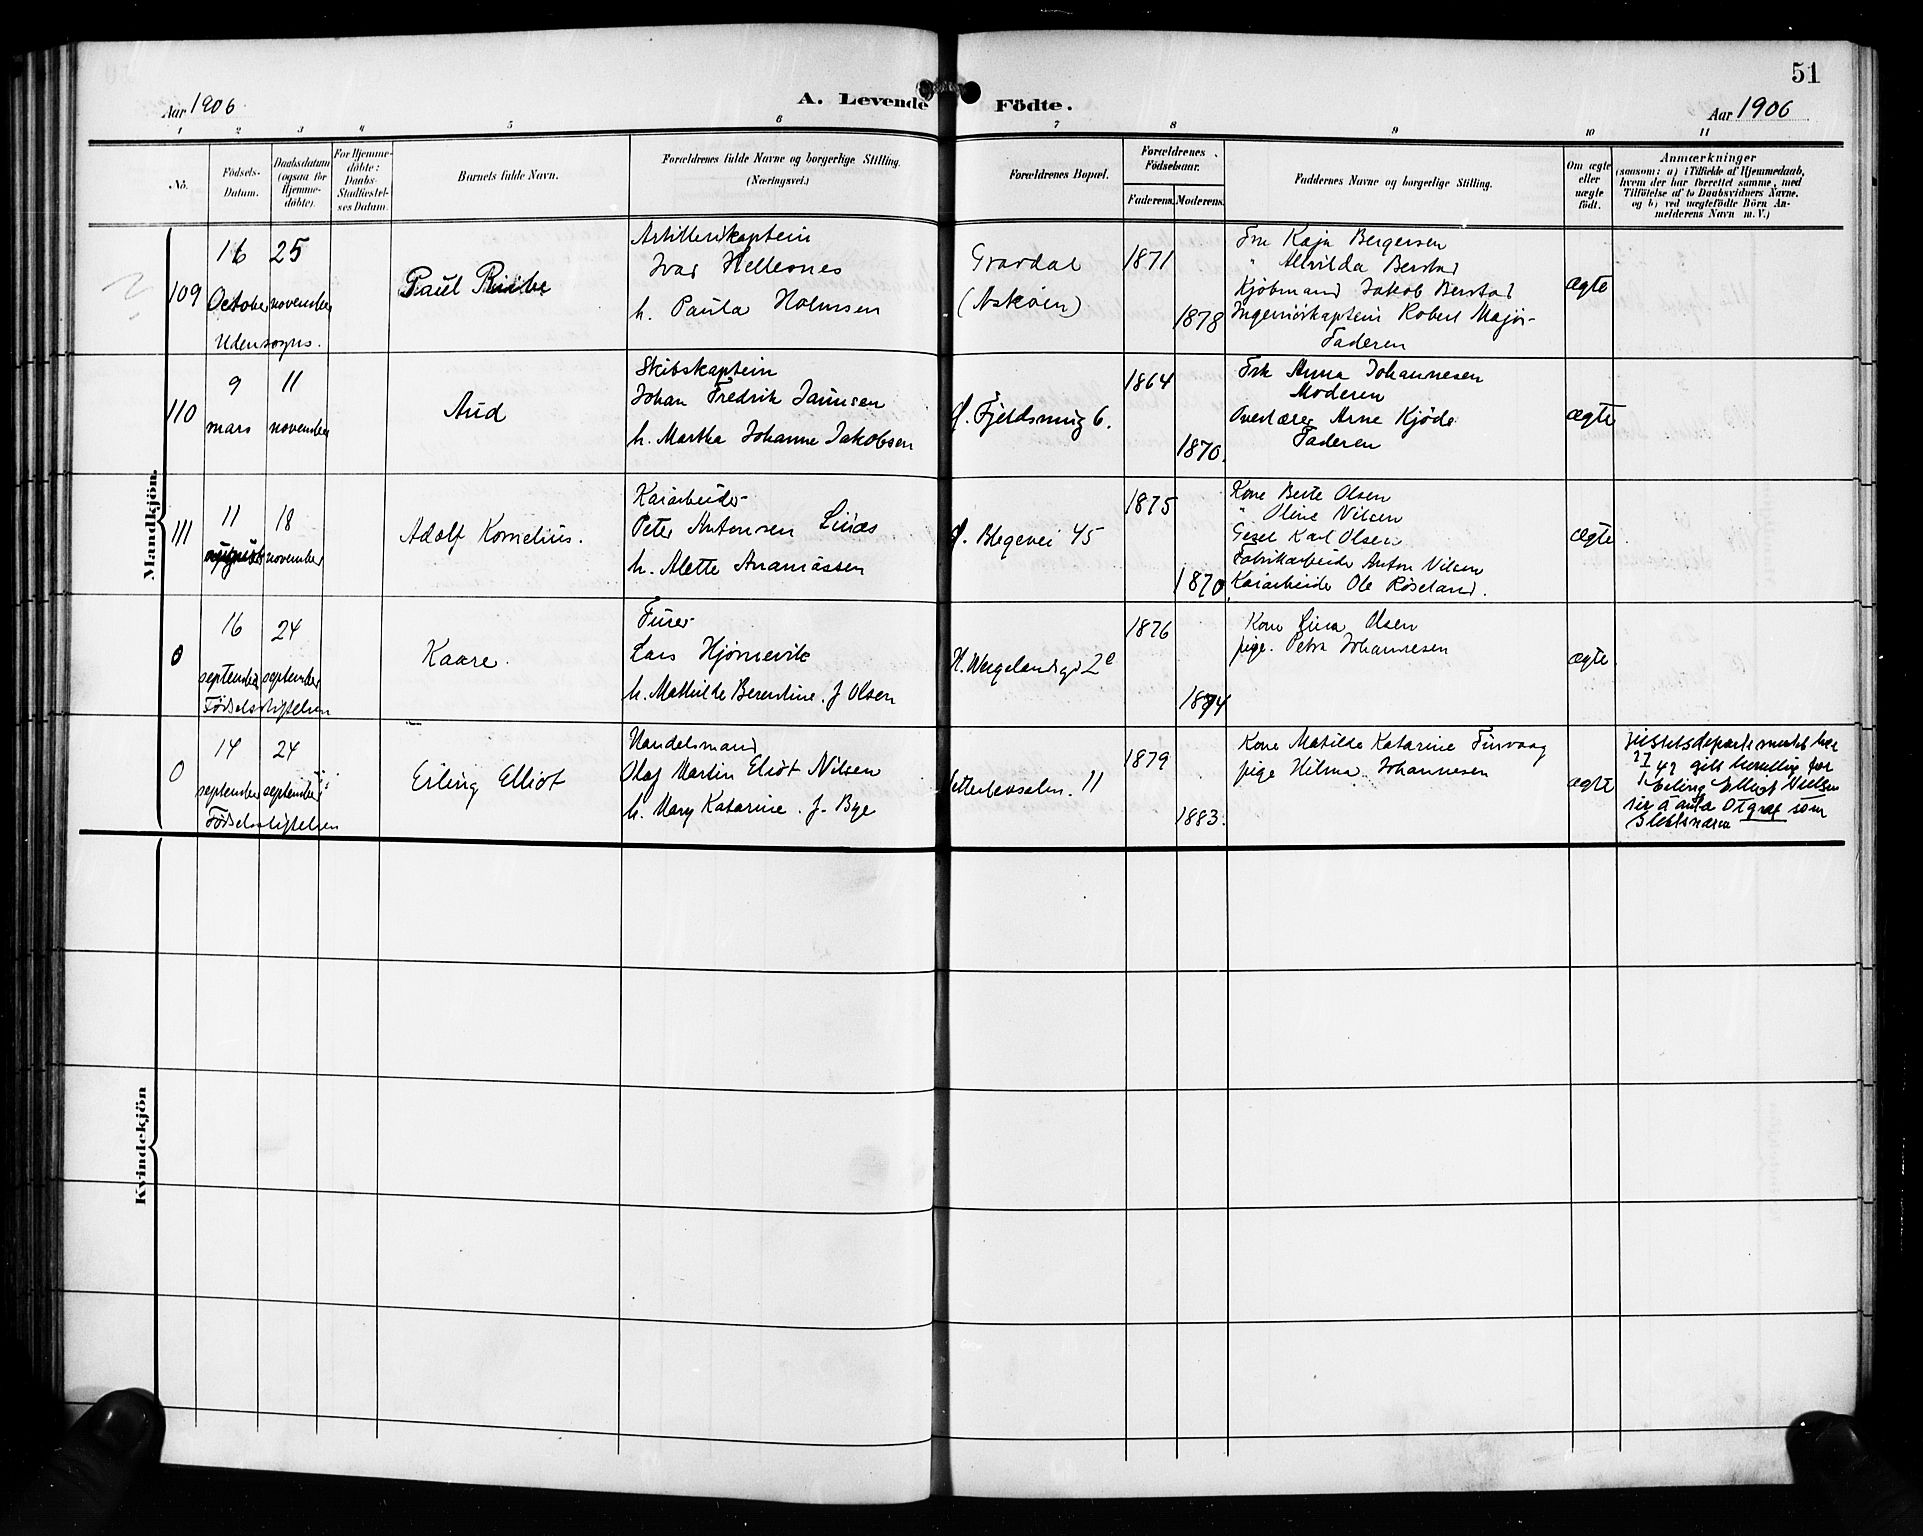 51
Aar 1906
A. Levende Födte.
Aar 1906
1 2 3 4 5 6 7 8 9 10 11
No.
Födsels-Datum.
Daabsdatum (ogsaa for Hjemme-döbte).
For Hjemme-döbte: Daabs-Stadfæstel-ses Datum.
Barnets fulde Navn.
Forældrenes fulde Navne og borgerlige Stilling.
(Næringsvei.)
Forældrenes Bopæl.
Forældrenes Födselsaar.
Faderens. Moderens.
Faddernes Navne og borgerlige Stilling.
Om ægte eller uægte födt.
Anmærkninger
(saasom: a) i Tilfælde af Hjemmedaab,
hvem der har forrettet samme, med
Tilföielse af to Daabsvidners Navne.
og b) ved uægtefödte Börn An-
melderens Navn m. V.)
Mandkjön.
109
16 25
October november
Udensogns.
Paul
Artillerikaptein
Ivar Hellesnes
h. Paula Holmsen
Gravdal
(Askøen)
1871
1878
Fru Kaja Bergersen
" Alvilda Berstad
Kjøbmand Jakob Berstad
Ingeniørkaptein Robert Major
Faderen
ægte
110
9 11
mars november
Aud
Skibskaptein
Johan Fredrik Jannsen
h. Martha Johanne Jakobsen
Fjeldsmug 6.
1864
1870.
Frk Anna Johannesen
Moderen
Overlærer Arne Kjøde
Faderen
ægte
111
11 18
november
Adolf Kornelius.
Kaiarbeider
Peter Antonsen
h. Alette Ananiassen
Blegevei 45
1875
1870
Kone Berte Olsen
" Oline Nilsen
Gesel Karl Olsen
Fabrikarbeider Anton Nilsen
Kaiarbeider Ole Røseland.
ægte
0
16 24
september september
Fødselsstiftelsen
Kaare.
Furer
Lars Hjørnevik
h. Mathilde Berentine. f Olsen
H. Wergelandsgd 2e
1876
1874
Kone Lina Olsen
pige. Petra Johannesen
ægte
0
14 24
september september
Fødselsstiftelsen
Erling Elliot
Handelsmand
Olaf Martin Eliot Nilsen
h. Mary Katarine. f. Bye
11
1879
1883.
Kone Matilde Katarine Finvaag
pige Hilma Johannesen
ægte
Justisdepartementet har
gitt bevilling for
Erling Elliot Nielsen
til å anta Otgræ som
slektsnavn
Kvindekjön